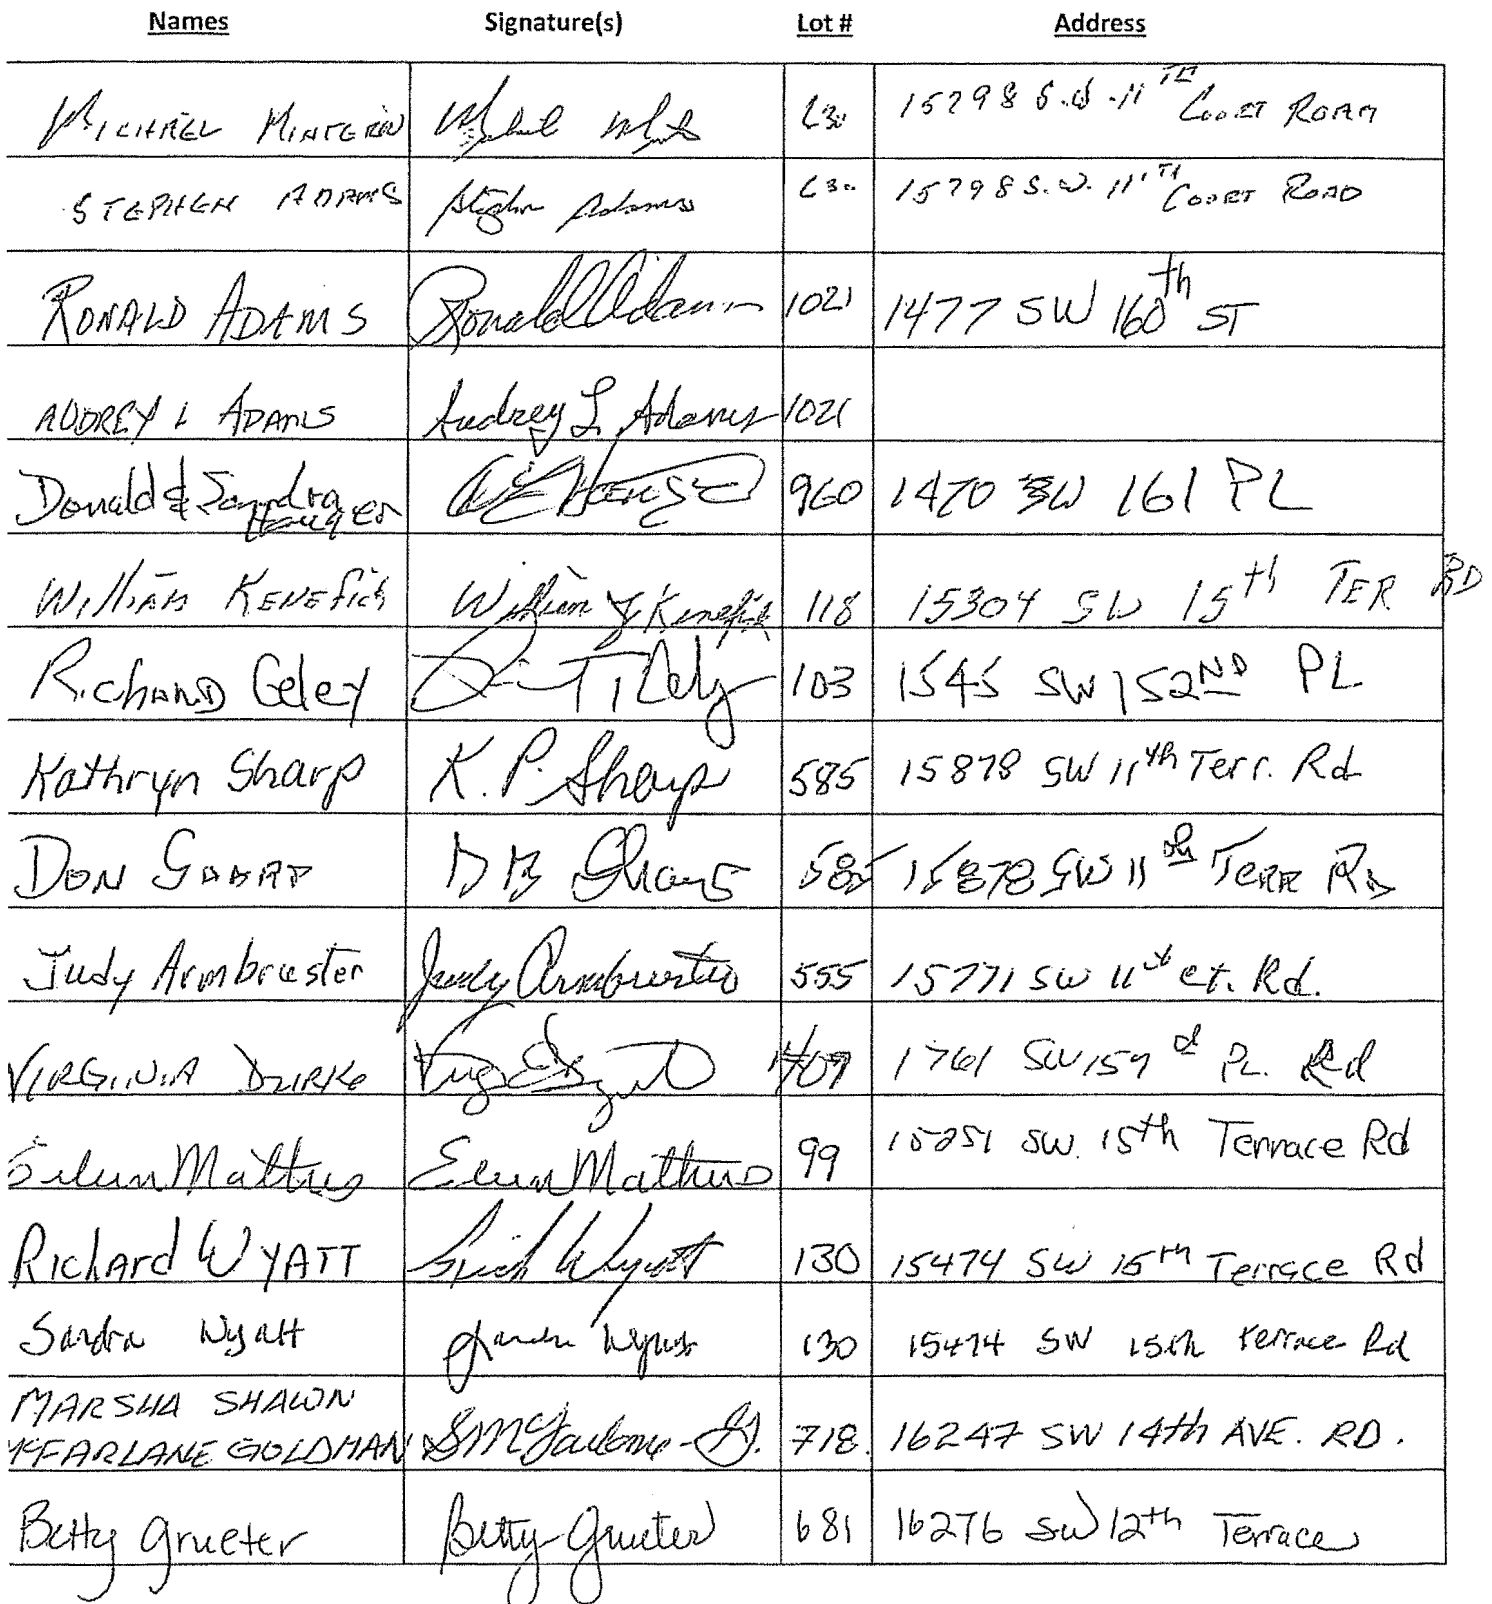 Names Signature(s) Lot # Address
MICHAEL MINTERN 630 15798 S.W. 11TH COURT ROAD
STEPHEN ADAMS Stephen Adams 630 15798 S.W. 11TH COURT ROAD
RONALD ADAMS Ronald Adams 1021 1477 SW 160th ST
AUDREY L ADAMS Audrey L. Adams 1021
Donald & Sandra Hauger 960 1470 SW 161 PL
William Kenefick William J Kenefick 118 15304 SW 15th TER RD
Richard Geley 103 1545 SW 152ND PL
Kathryn Sharp K. P. Sharp 585 15878 SW 11th Terr. Rd
DON 585 15878 SW 11th Terr Rd
Judy Armbruster Judy Armbruster 555 15771 SW 11th ct. Rd.
VIRGINIA 1761 SW 157 PL. Rd
Eileen Mathus Eileen Mathus 99 15251 SW. 15th Terrace Rd
Richard WYATT Rich Wyatt 130 15474 SW 15th Terrace Rd
Sandra Wyatt Sandra Wyatt 130 15474 SW 15th terrace Rd
MARSHA SHAWN
McFARLANE GOLDMAN S McFarlane-G. 718. 16247 SW 14th AVE. RD.
Betty Grueter Betty Grueter 681 16276 SW 12th Terrace